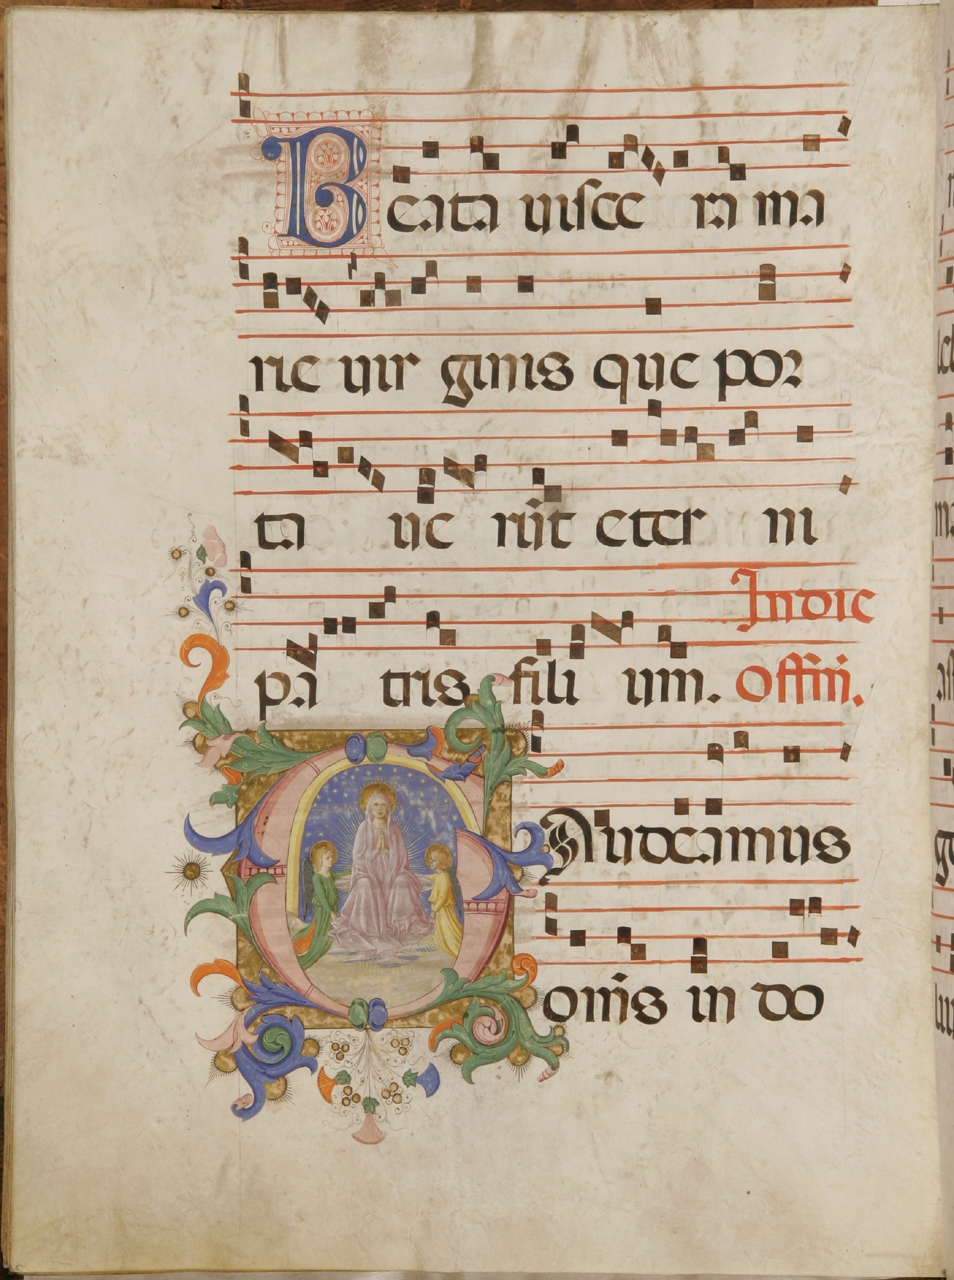 Beata uisce ra ma
rie uir ginis que por
ta ue rūt eter ni
pa tris fili um. Indic
offm̄.
Gaudeamus
omīs in do